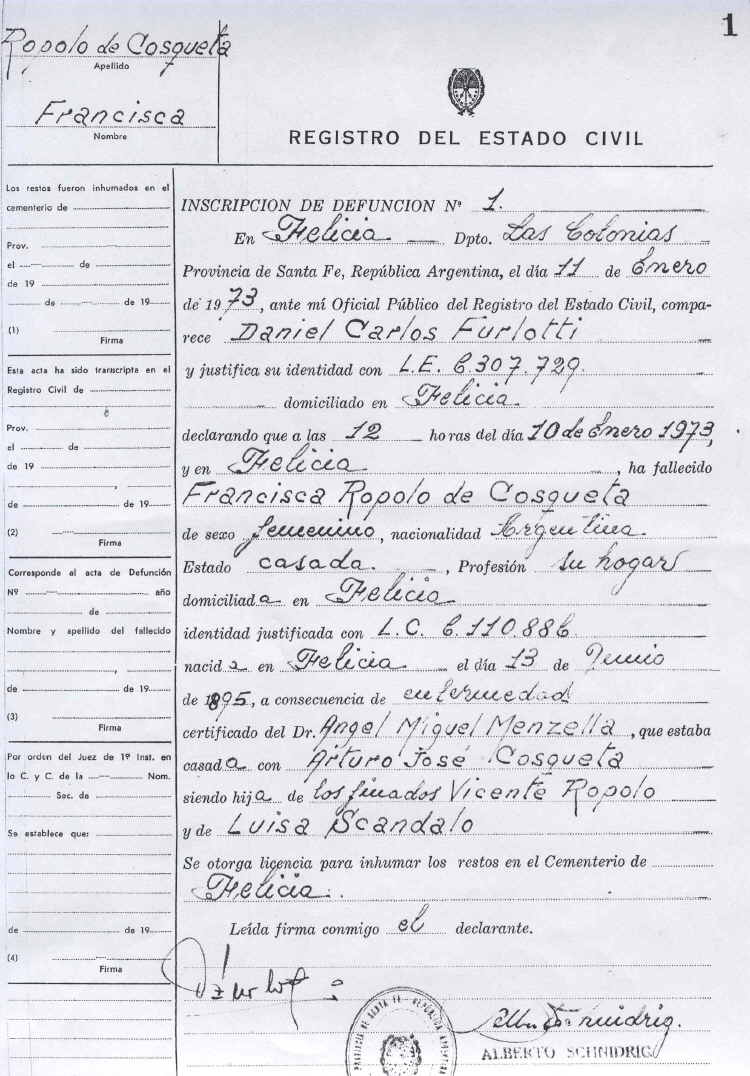 1
Ropolo de Cosqueta
Apellido
Francisca
Nombre
REGISTRO DEL ESTADO CIVIL
Los restos fueron inhumados en el
cementerio de
Prov.
el de
de 19
de de 19
(1)
Firma
Esta acta ha sido transcripta en el
Registro Civil de
Prov.
el de
de 19
de de 19
(2)
Firma
Corresponde al acta de Defunción
Nº año
de
Nombre y apellido del fallecido
de de 19
(3)
Firma
Por orden del Juez de 1ª Inst. en
lo C. y C. de la Nom.
Sec. de
Se establece que:
de de 19
(4)
Firma
INSCRIPCION DE DEFUNCION Nº 1.
En Felicia Dpto. Las Colonias
Provincia de Santa Fe, República Argentina, el día 11 de Enero
de 1973, ante mí Oficial Público del Registro del Estado Civil, compa-
rece Daniel Carlos Furlotti
y justifica su identidad con L.E. 6.307.729.
domiciliado en Felicia.
declarando que a las 12 horas del día 10 de Enero 1973,
y en Felicia , ha fallecido
Francisca Ropolo de Cosqueta
de sexo femenino, nacionalidad Argentina.
Estado casada. , Profesión su hogar
domiciliada en Felicia
identidad justificada con L.C. 6.110.886
nacida en Felicia el día 13 de Junio
de 1895, a consecuencia de enfermedad
certificado del Dr. Angel Miguel Menzella , que estaba
casada con Arturo José Cosqueta
siendo hija de los finados Vicente Ropolo
y de Luisa Scandalo
Se otorga licencia para inhumar los restos en el Cementerio de
Felicia.
Leída firma conmigo el declarante.
PROVINCIA DE SANTA FE - REPUBLICA ARGENTINA
ALBERTO SCHNIDRIG